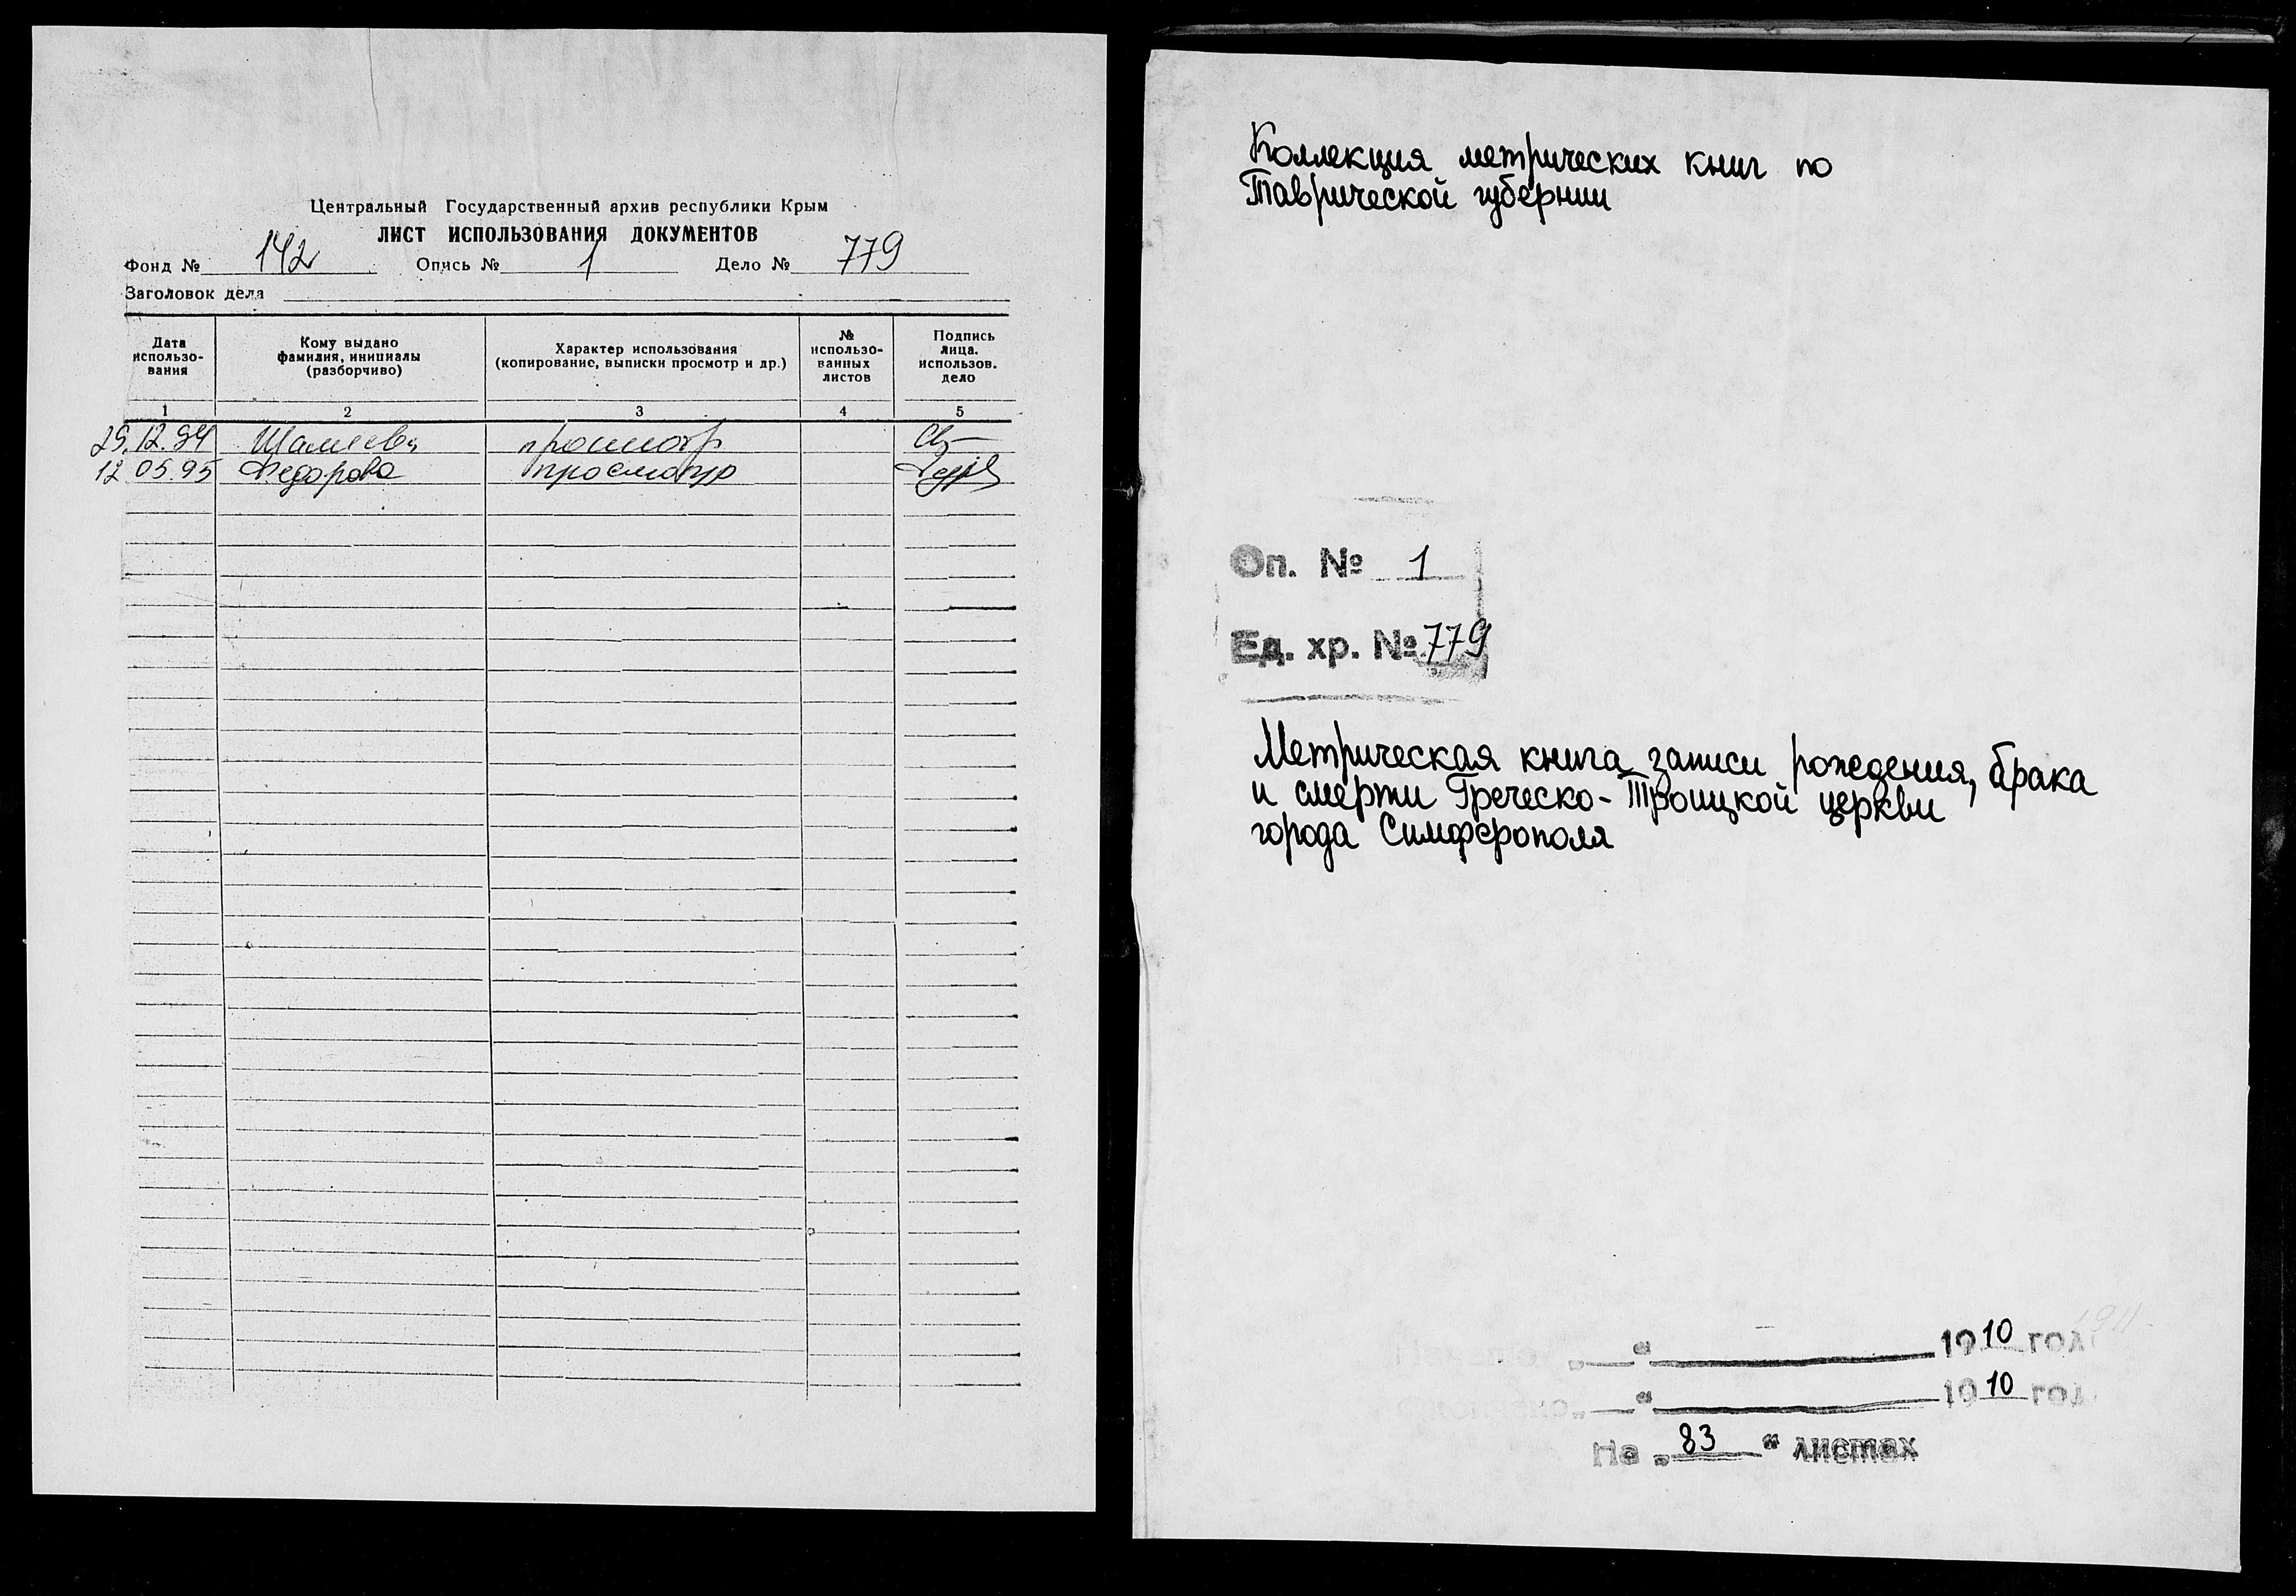 Центральный Государственный архив республики Крым
ЛИСТ ИСПОЛЬЗОВАНИЯ ДОКУМЕНТОВ
Фонд № 142 Опись № 1 Дело № 779
Заголовок дела
Дата использо-вания
Кому выдано фамилия, инициалы (разборчиво)
Характер использования (копирование, выписки просмотр и др.)
№ использо-ванных листов
Подпись лица. использов. дело
1 2 3 4 5
29.12.94 просмотр
12.05.95 Федорова просмотр
Коллекция метрических книг по
Таврической губернии
Оп. № 1
Ед. хр. № 779
Метрическая книга записи рождения, брака
и смерти Греческо-Троицкой церкви
города Симферополя
1911
„ “ 1910 год
„ “ 1910 год
На „83“ листах